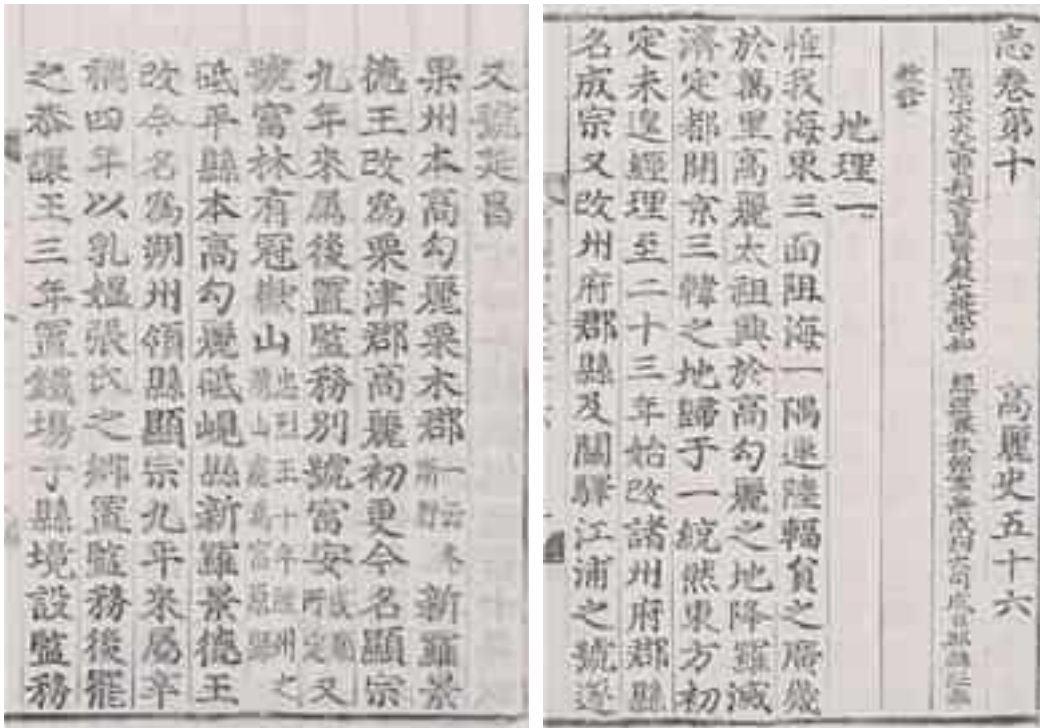 志卷第十 高麗史五十六
集賢殿大提學知 經筵春秋館事兼成均大司成
敎修
地理一
惟我海東三面阻海一隅連陸輻員之廣幾
於萬里高麗太祖興於高勾麗之地降羅滅
濟定都開京三韓之地歸于一統然東方初
定未遑經理至二十三年始改諸州府郡縣
名成宗又改州府郡縣及關驛江浦之號遂
又號延昌
果州本高勾麗栗木郡一云冬斯肹新羅景
德王改爲栗津郡高麗初更今名顯宗
九年來屬後置監務別號富安成廟所定又
號富林有冠嶽山忠烈王十年陞州之龍山處爲富原縣
砥平縣本高勾麗砥峴縣新羅景德王
改今名爲朔州領縣顯宗九年來屬辛
禑四年以乳媼張氏之鄕置監務後罷
之恭讓王三年置鐵場于縣境設監務